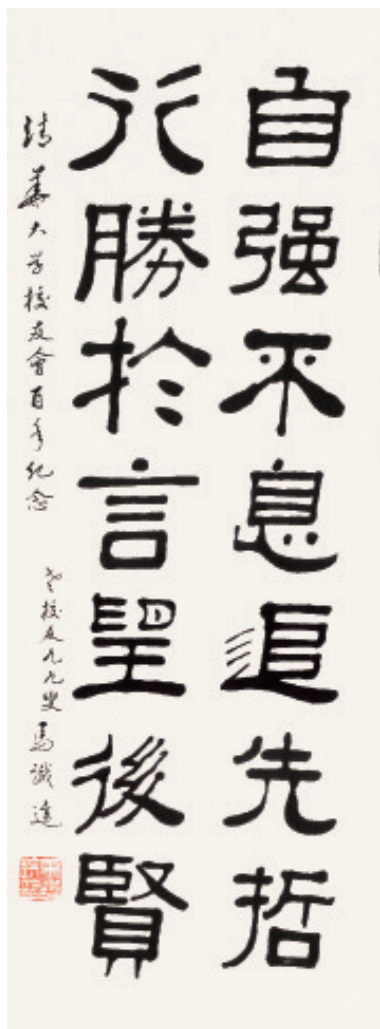 自强不息追先哲
行勝於言望後賢
清華大学校友會百年纪念
老校友九九叟馬識途